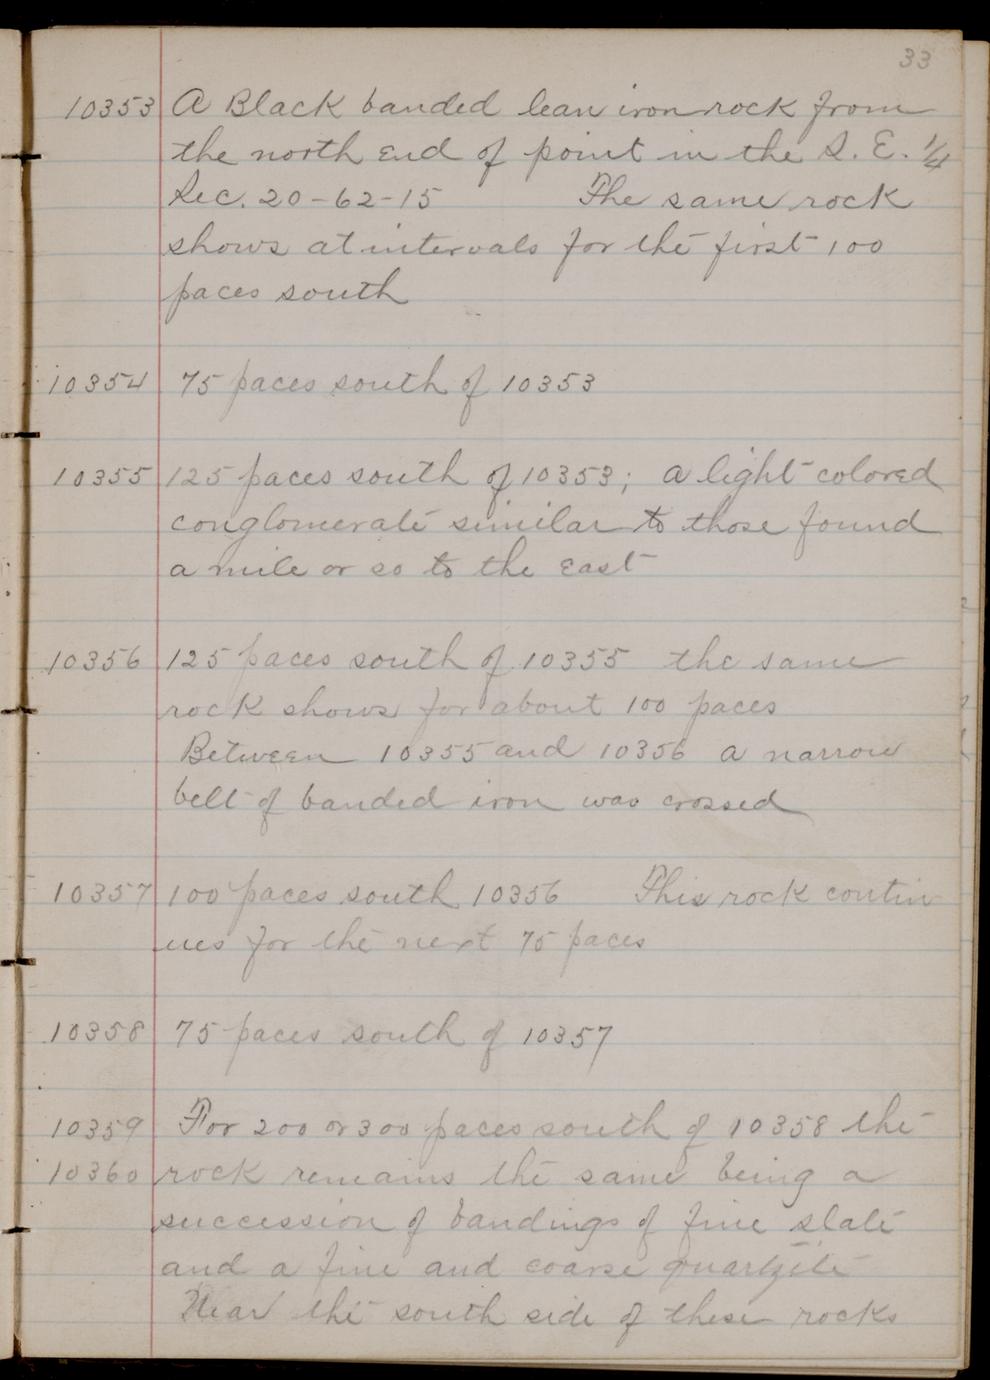 33
10353 A Black banded lean iron rock from
the north end of point in the S. E. 1/4
Sec. 20-62-15 The same rock
shows at intervals for the first 100
paces south
10354 75 paces south of 10353
10355 125 paces south of 10353; a light colored
conglomerate similar to those found
a mile or so to the east
10356 125 paces south of 10355 the same
rock shows for about 100 paces
Between 10355 and 10356 a narrow
belt of banded iron was crossed
10357 100 paces south 10356 This rock contin
ues for the next 75 paces
10358 75 paces south of 10357
10359 For 200 or 300 paces south of 10358 the
10360 rock remains the same being a
succession of bandings of fine slate
and a fine and coarse quartzite
Near the south side of these rocks